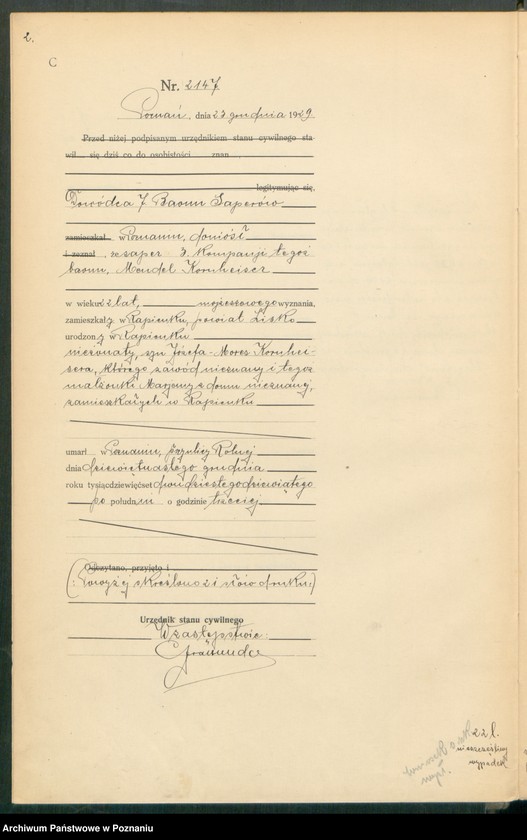 2.
C
Nr. 2147
Poznań, dnia 23 grudnia 1929
Przed niżej podpisanym urzędnikiem stanu cywilnego sta
wił się dziś co do osobistości znan
legitymując się,
Dowódca 7 Baonu Saperów
zamieszkał w Poznaniu, doniósł
i zeznał, że saper 3. kompanji tegoż
baonu, Mendel Kornheiser
w wieku 22 lat, mojżeszowego wyznania,
zamieszkały w Łapienku, powiat Lisko
urodzony w Łapienku
nieżonaty, syn Józefa-Moresa Kornhei-
sera, którego zawód nieznany i tegoż
małżonki Marjemy z domu nieznanej,
zamieszkałych w Łapienku
umarł w Poznaniu, przy ulicy Rolnej
dnia dziewiętnastego grudnia
roku tysiącdziewięćset dwudziestegodziewiątego
po południu o godzinie trzeciej
Odczytano, przyjęto i
(: Powyżej skreślono 21 słów druku:)
Urzędnik stanu cywilnego
W zastępstwie:
22 l.
nieszczęśliwy
wypadek
Archiwum Państwowe w Poznaniu